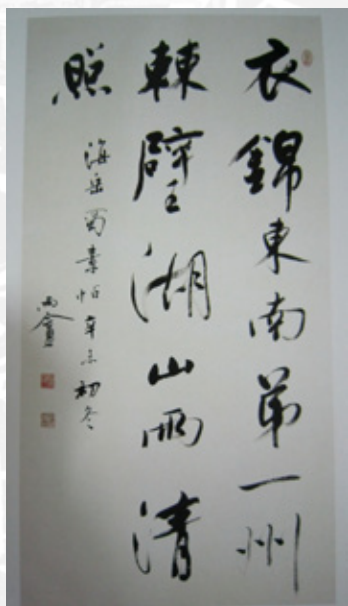 衣錦東南第一州
棘璧湖山兩清
照
海岳蜀素帖辛未初冬
雨盦